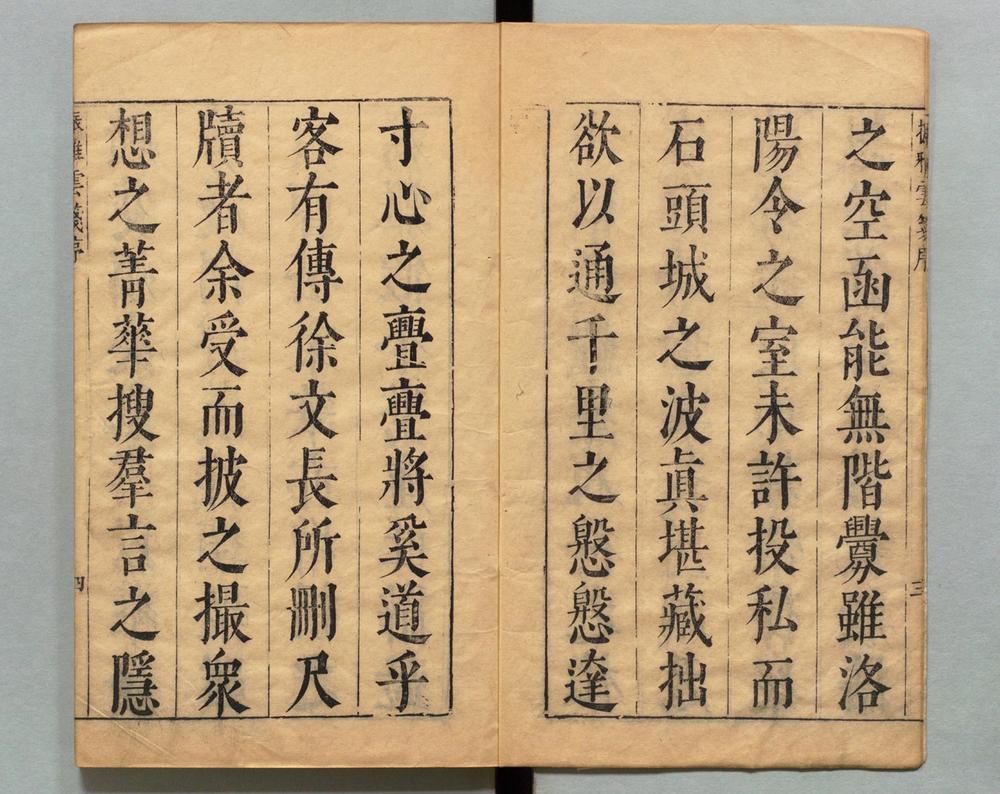 振雅雲箋序
三
之空函能無階釁雖洛
陽令之室未許投私而
石頭城之波眞堪藏拙
欲以通千里之慇慇達
寸心之亹亹將奚道乎
客有傳徐文長所刪尺
牘者余受而披之撮衆
想之菁華搜羣言之隱
振雅雲箋序
四